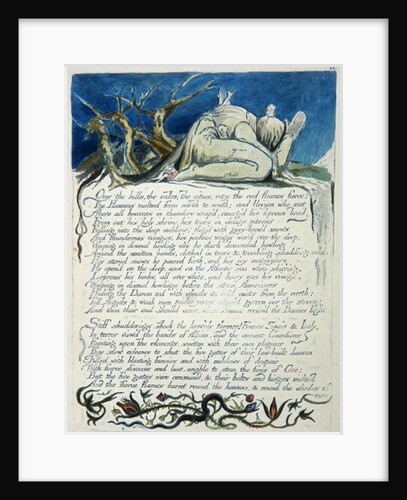 Over the hills, the vales, the cities, rage the red flames fierce;
The Heavens melted from north to south; and Urizen who sat
Above all heavens in thunders wrap'd, emerg'd his leprous head
From out his holy shrine, his tears in deluge piteous
Falling into the deep sublime! flag'd with grey-brow'd snows
And thunderous visages, his jealous wings wav'd over the deep;
Weeping in dismal howling woe he dark descended howling
Around the smitten bands, clothed in tears & trembling shudd'ring cold.
His stored snows he poured forth, and his icy magazines
He open'd on the deep, and on the Atlantic sea white shiv'ring.
Leprous his limbs, all over white, and hoary was his visage.
Weeping in dismal howlings before the stern Americans
Hiding the Demon red with clouds & cold mists from the earth;
Till Angels & weak men twelve years should govern o'er the strong:
And then their end should come, when France reciev'd the Demons light.
Stiff shudderings shook the heav'nly thrones! France Spain & Italy,
In terror view'd the bands of Albion, and the ancient Guardians
Fainting upon the elements, smitten with their own plagues
They slow advance to shut the five gates of their law-built heaven
Filled with blasting fancies and with mildews of despair
With fierce disease and lust, unable to stem the fires of Orc;
But the five gates were consum'd, & their bolts and hinges melted
And the fierce flames burnt round the heavens, & round the abodes of
men